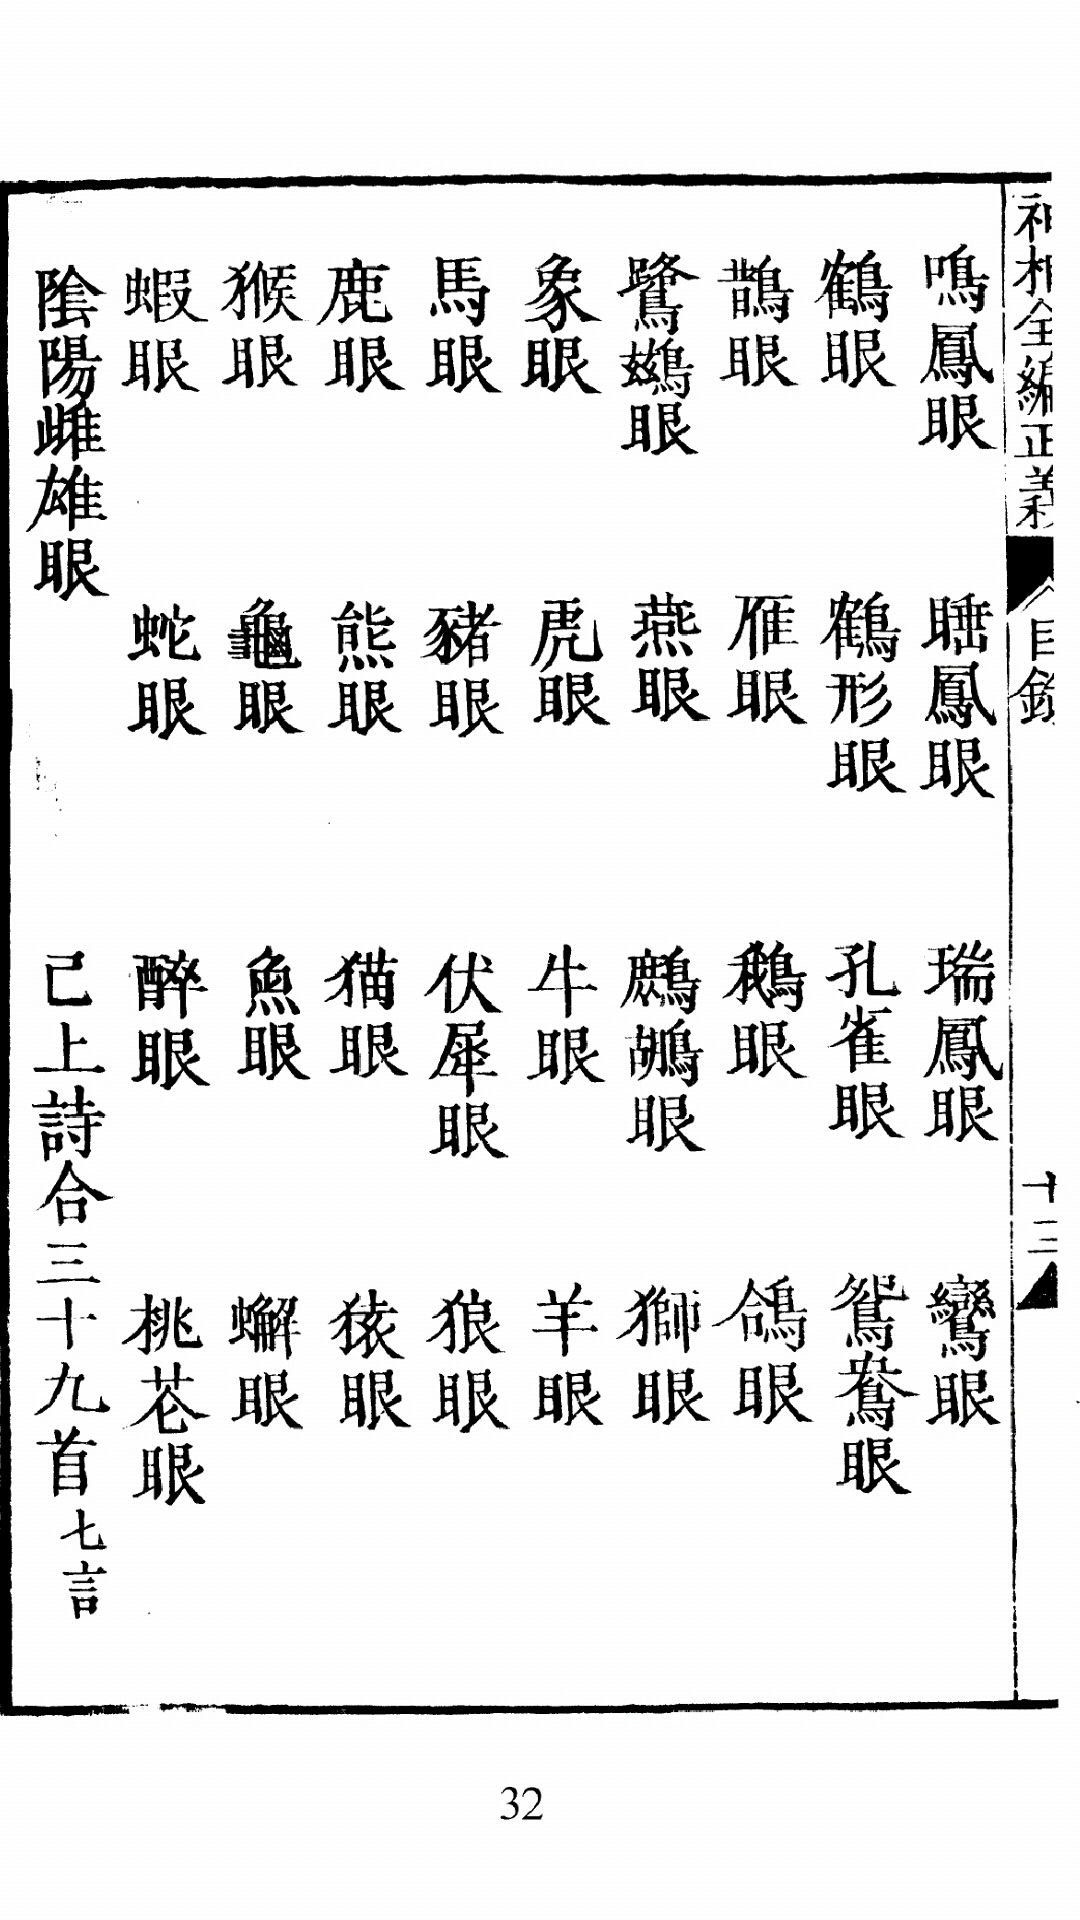 神相全編正義 目錄 十三
鳴鳳眼 睡鳳眼 瑞鳳眼 鸞眼
鶴眼 鶴形眼 孔雀眼 鴛鴦眼
鵲眼 雁眼 鵝眼 鴿眼
鷺鷥眼 燕眼 鷓鴣眼 獅眼
象眼 虎眼 牛眼 羊眼
馬眼 豬眼 伏犀眼 狼眼
鹿眼 熊眼 猫眼 猿眼
猴眼 龜眼 魚眼 蠏眼
蝦眼 蛇眼 醉眼 桃花眼
陰陽雌雄眼 己上詩合三十九首七言
32